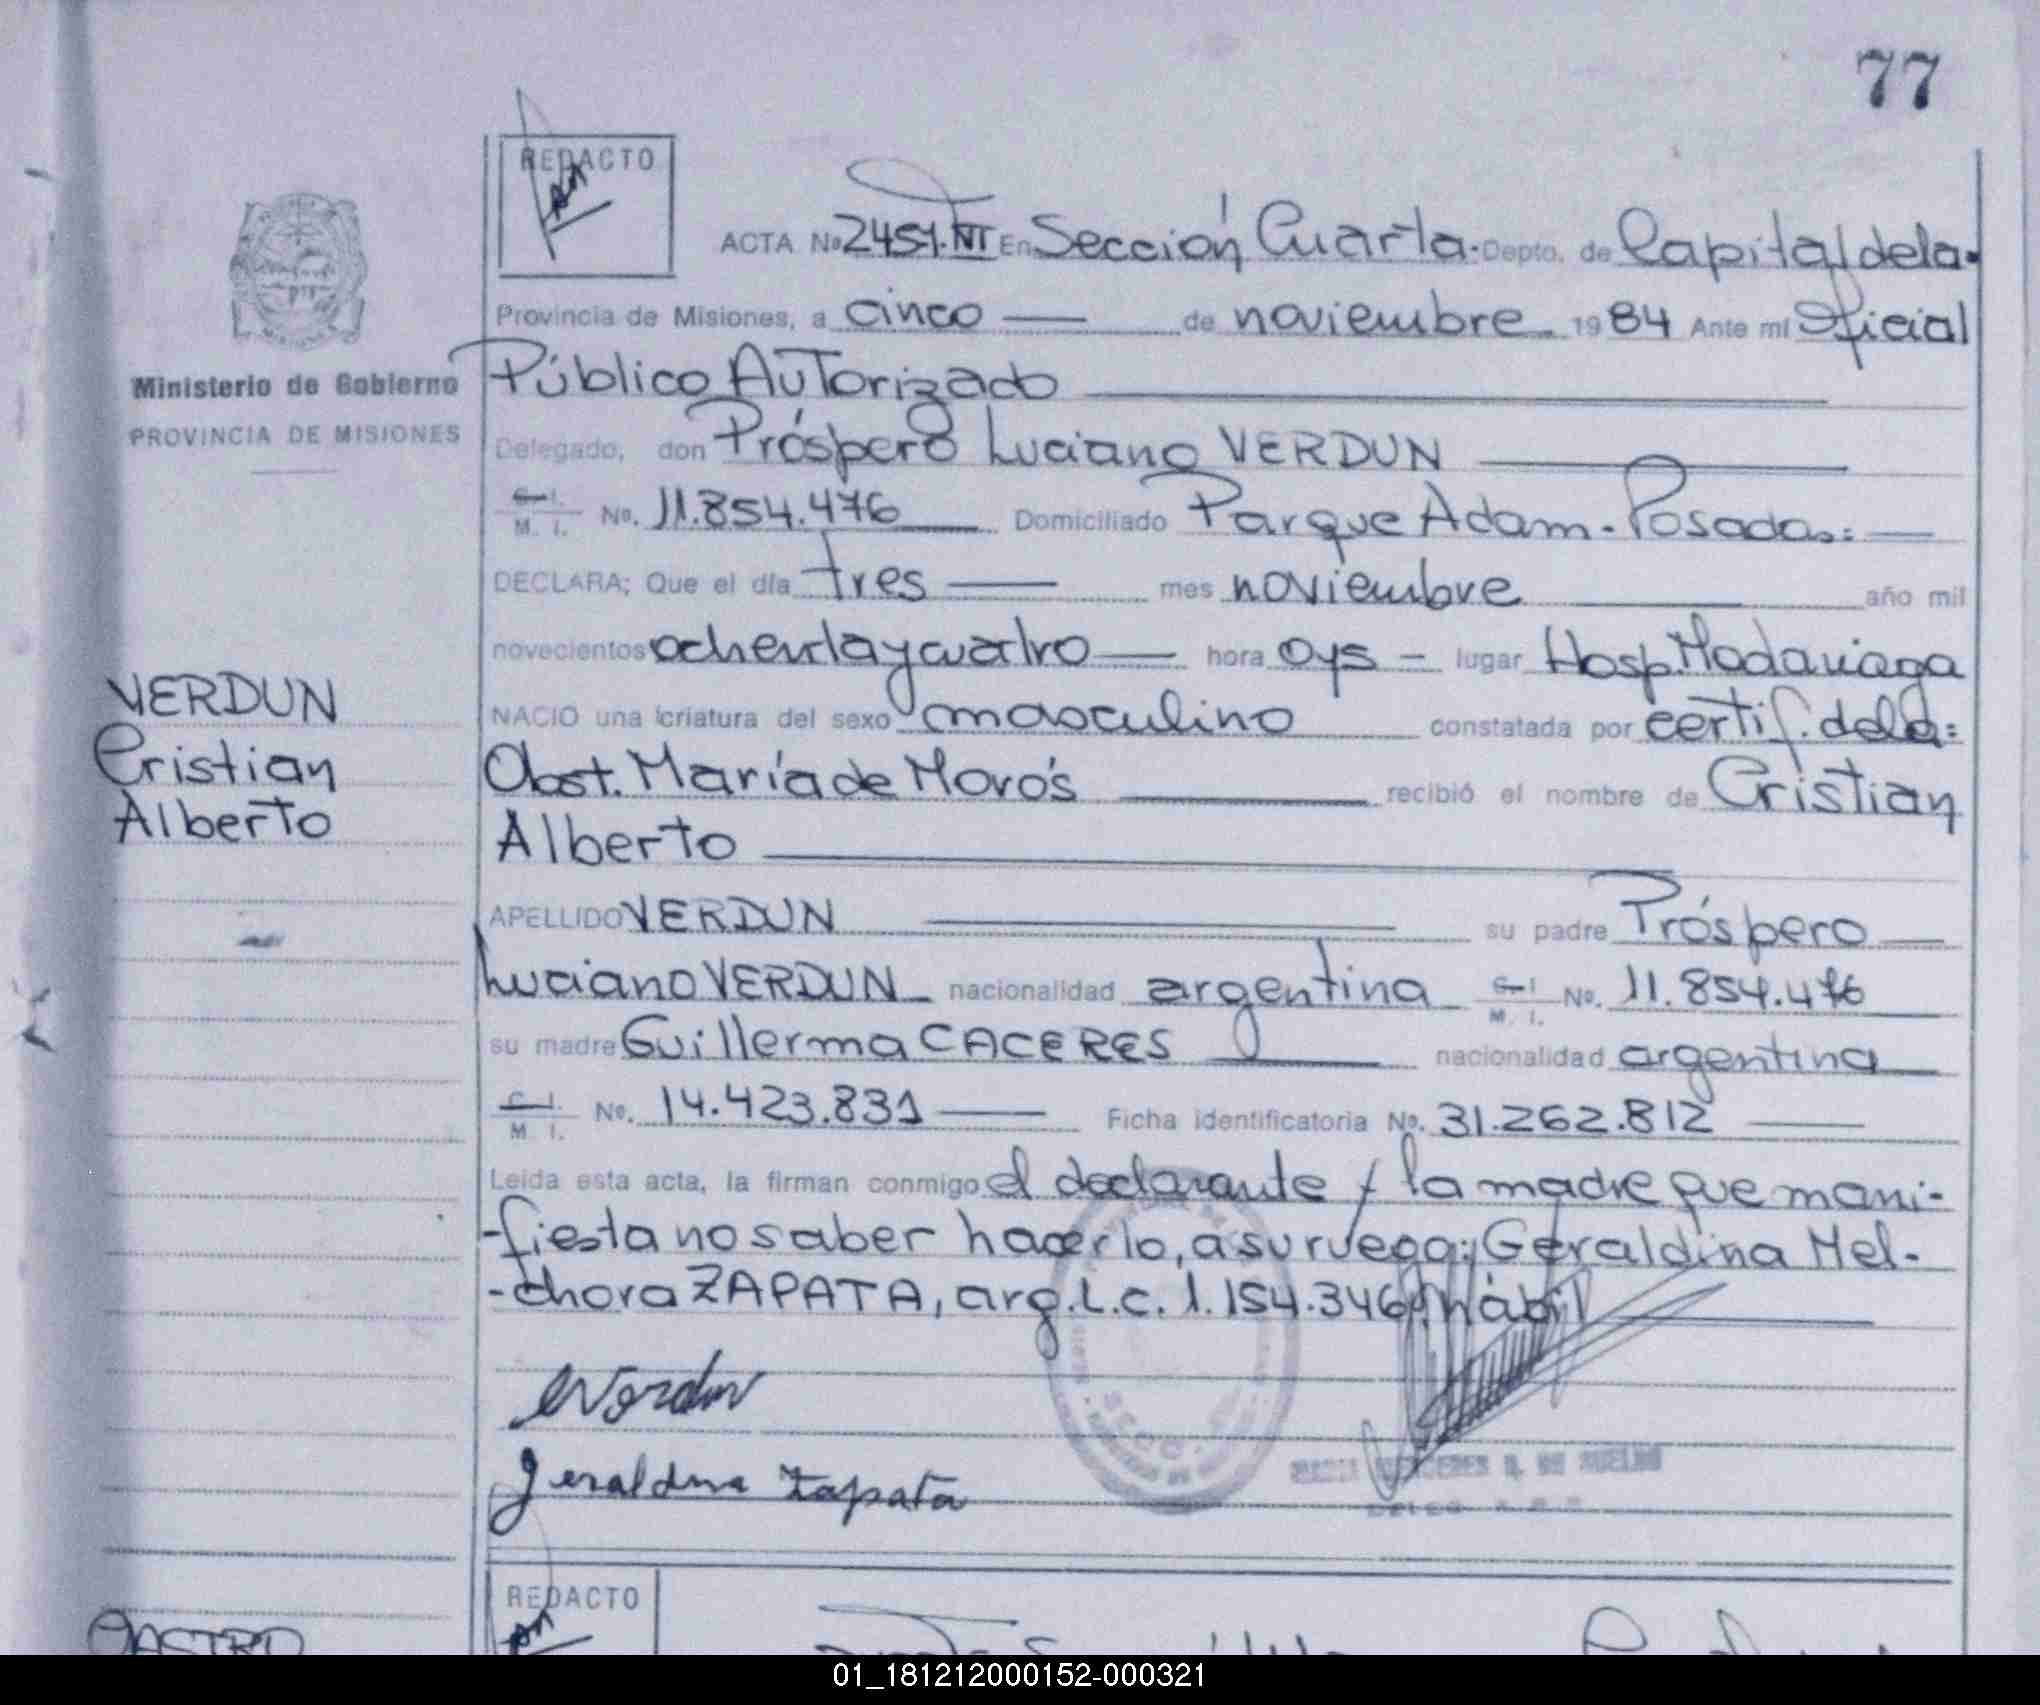 77
REDACTO
ACTA No 2451.TVI En Sección Cuarta. Depto. de Capital de la
Provincia de Misiones, a cinco de noviembre 1984 Ante mí Oficial
Ministerio de Gobierno
PROVINCIA DE MISIONES
Público Autorizado
Delegado, don Próspero Luciano VERDUN
C. I.
M. I. No. 11.854.476 Domiciliado Parque Adam. Posadas.=
DECLARA; Que el día tres mes noviembre año mil
novecientos ochenta y cuatro hora 0y5 - lugar Hosp. Madariaga
VERDUN
Cristian
Alberto
NACIO una criatura del sexo masculino constatada por certif. de la=
Obst. María de recibió el nombre de Cristian
Alberto
APELLIDO VERDUN su padre Próspero
Luciano VERDUN nacionalidad argentina C. I.
M. I. No. 11.854.476
su madre Guillerma CACERES nacionalidad argentina
C. I.
M. I. No. 14.423.831 Ficha identificatoria No. 31.262.812
Leída esta acta, la firman conmigo el declarante y la madre que mani-
-fiesta no saber hacerlo, a su ruego: Geraldina Mel-
-chora ZAPATA, arg. L.C. 1.154.346 hábil
Verdun
Geraldina Zapata
REDACTO
CASTRO
01_181212000152-000321